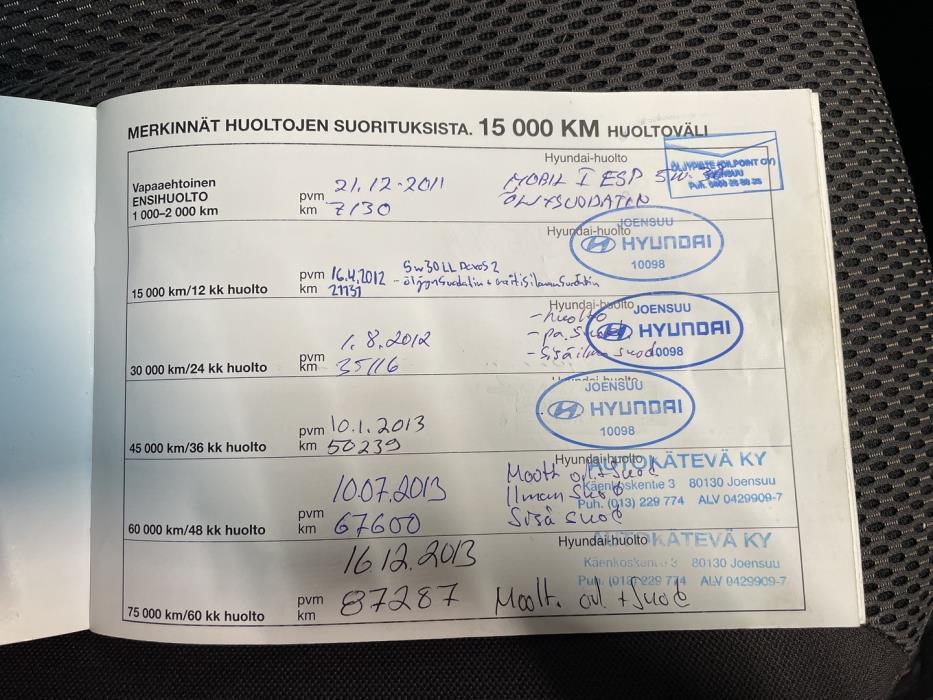 MERKINNÄT HUOLTOJEN SUORITUKSISTA. 15 000 KM HUOLTOVÄLI
Vapaaehtoinen
ENSIHUOLTO
1 000–2 000 km
pvm 21.12-2011
km 7130
Hyundai-huolto
MOBIL 1 ESP 5W-30
ÖLJYSUODATIN
ÖLJYPISTE (OILPOINT OY)
JOENSUU
Puh.
15 000 km/12 kk huolto
pvm 16.4.2012 5w30LL Dexos2
km 21131 - öljynsuodatin + raitisilmansuodatin
Hyundai-huolto
JOENSUU
HYUNDAI
10098
30 000 km/24 kk huolto
pvm 1.8.2012
km 35116
Hyundai-huolto
- huolto
- pa. suod
- Sisäilm suod
JOENSUU
HYUNDAI
10098
45 000 km/36 kk huolto
pvm 10.1.2013
km 50239
Hyundai-huolto
JOENSUU
HYUNDAI
10098
60 000 km/48 kk huolto
pvm 10.07.2013
km 67600
Hyundai-huolto
Moott öil + Suod
Ilman Suod
Sisä suod
AUTOKÄTEVÄ KY
Käenkoskentie 3 80130 Joensuu
Puh. (013) 229 774 ALV 0429909-7
75 000 km/60 kk huolto
pvm 16.12.2013
km 87287
Hyundai-huolto
Moott. öil + Suod
AUTOKÄTEVÄ KY
Käenkoskentie 3 80130 Joensuu
Puh. (013) 229 774 ALV 0429909-7